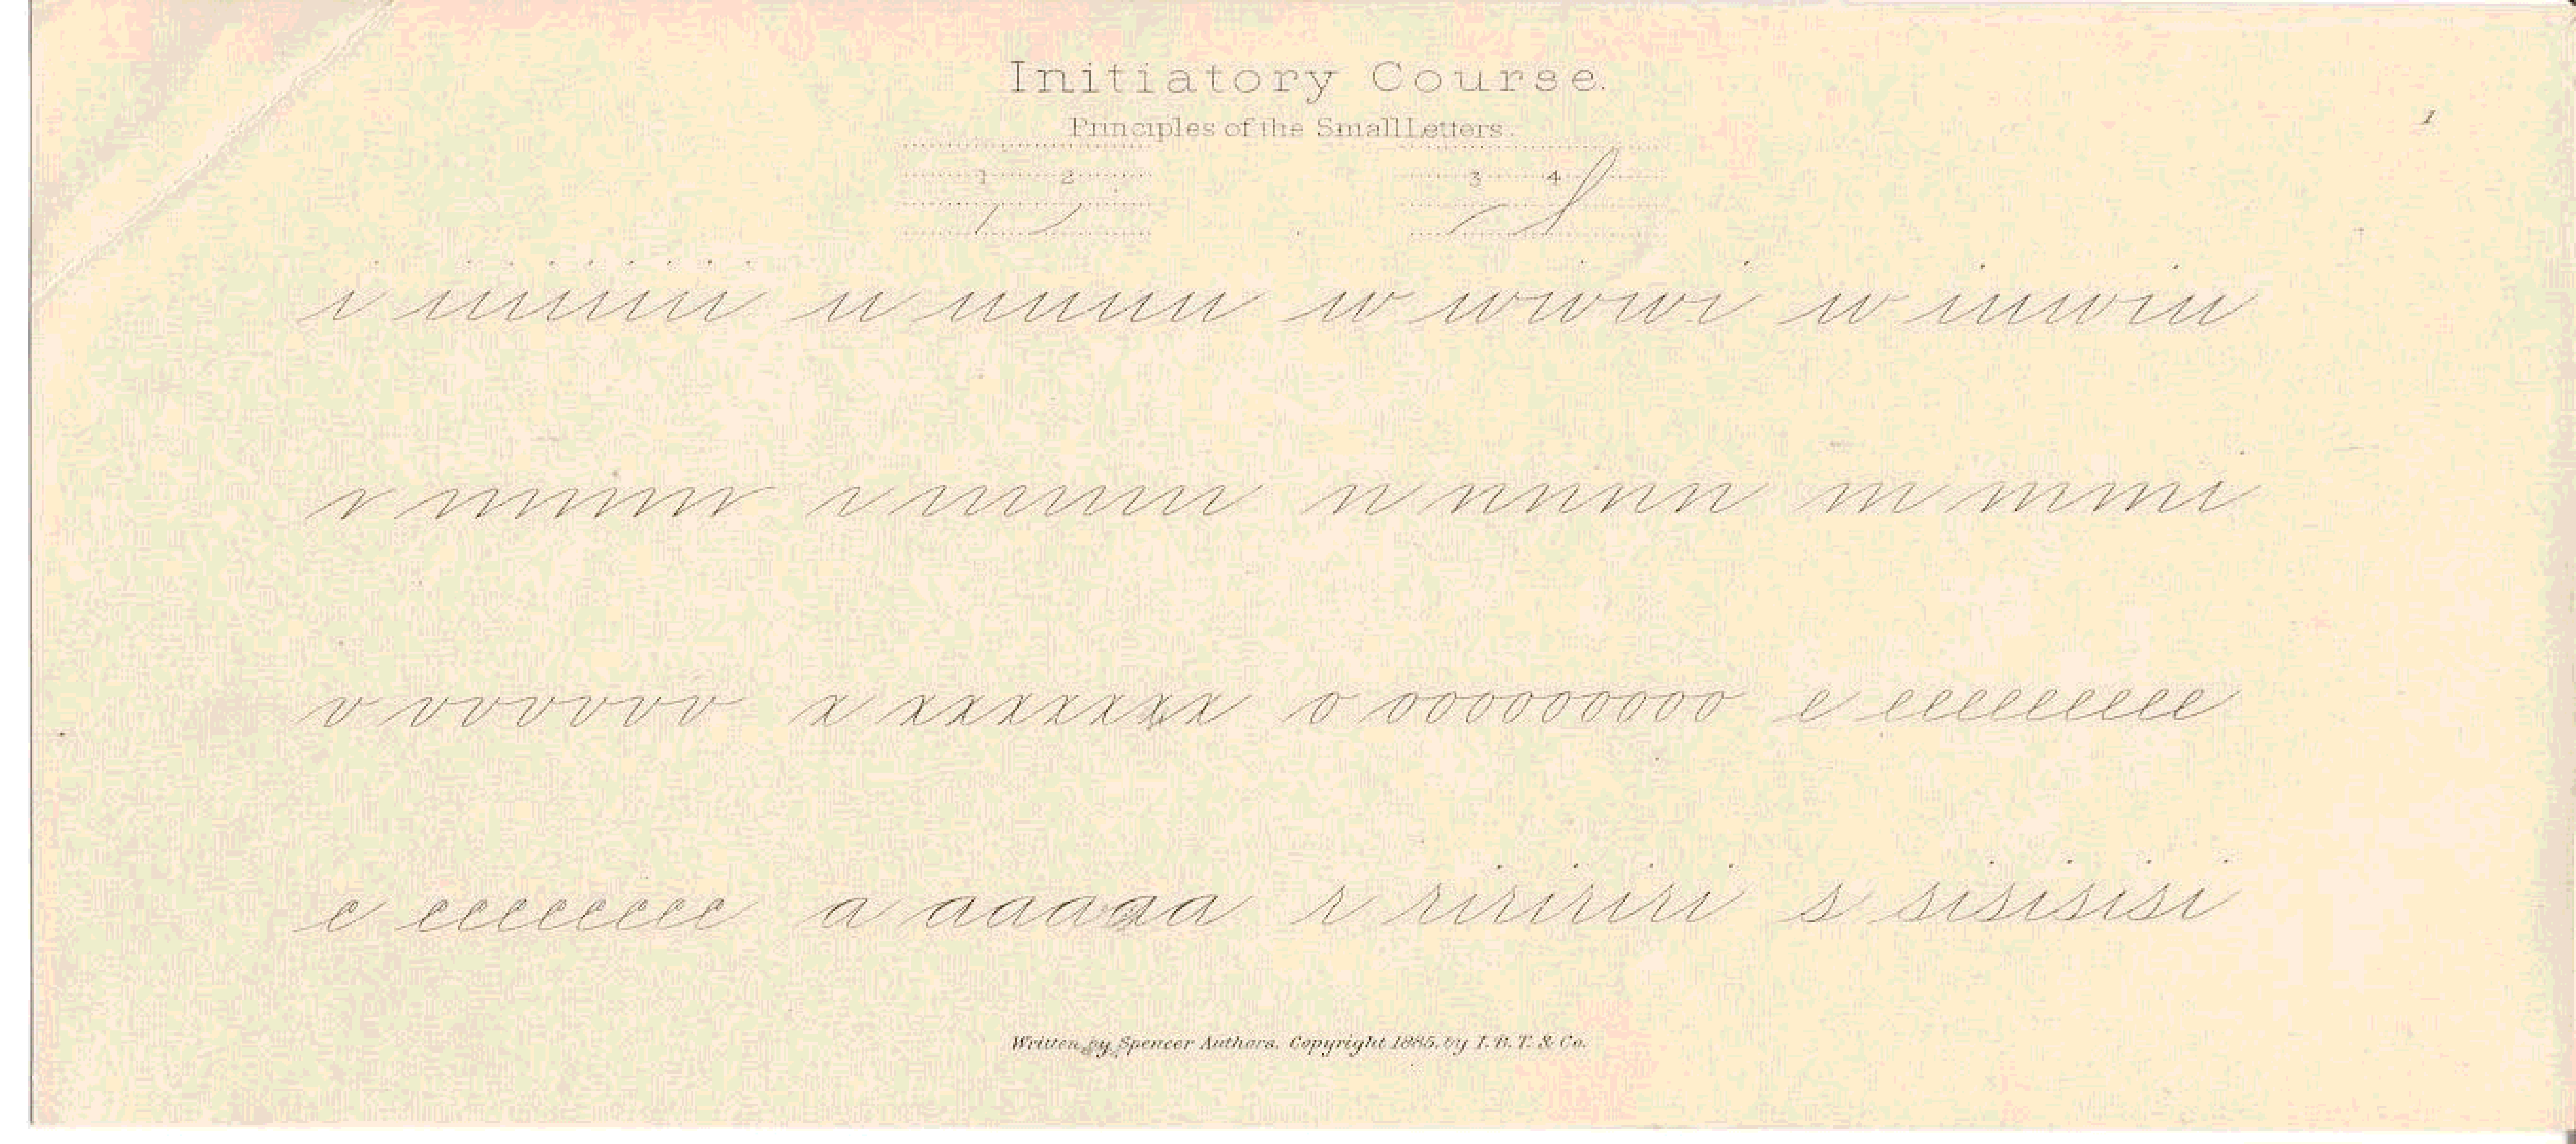 Initiatory Course.
1
Principles of the Small Letters.
1 2 3 4
i iiiiiiii u uuuu w wiwiwi w iuwiu
n nnnn m mmi
v vvvvvv x xxxxxxx o ooooooooo e eeeeeeeee
c cccccccc a aaaaaa r riririri s sisisisi
Written by Spencer Authors. Copyright 1885, by I. B. T. & Co.